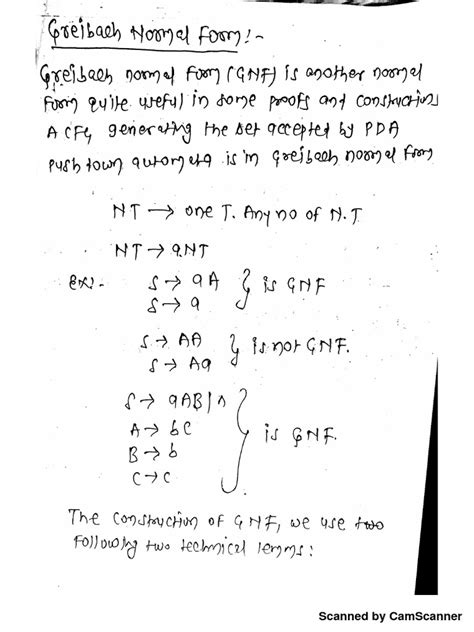 Greibach Normal Form:-
Greibach normal form (GNF) is another normal
form quite useful in some proofs and constructions
A CFG generating the set accepted by PDA
push town automata is in Greibach normal form
NT → one T. Any no of N.T
NT → a.NT
ex:- S → aA } is GNF
S → a
S → AA } is not GNF.
S → Aa
S → aAB|∧
A → bC
B → b } is GNF.
C → c
The construction of GNF, we use two
following two technical lemms:
Scanned by CamScanner